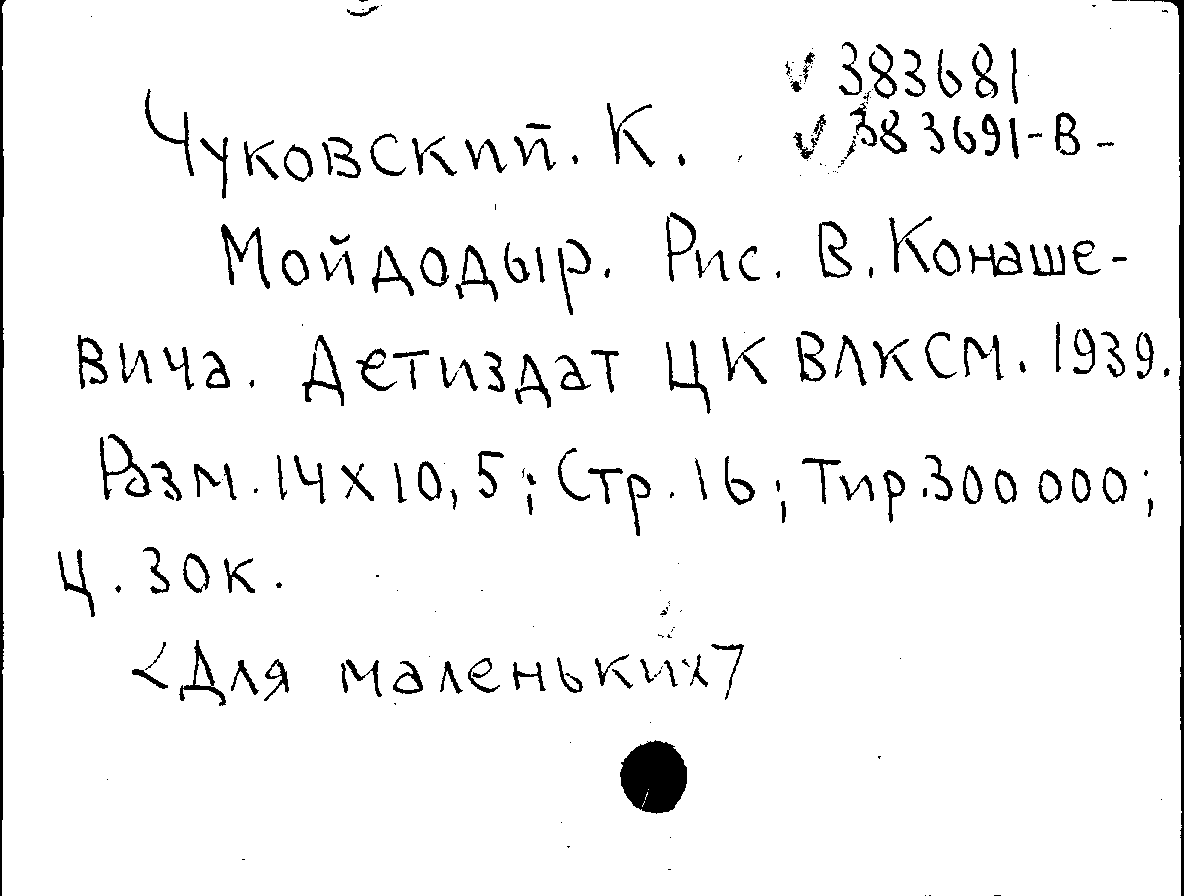 ✓ 383681
Чуковский. К. ✓ 383691-В-
Мойдодыр. Рис. В. Конаше-
вича. Детиздат ЦК ВЛКСМ. 1939.
Разм. 14х10,5; Стр. 16; Тир. 300 000;
Ц. 30к.
<Для маленьких>